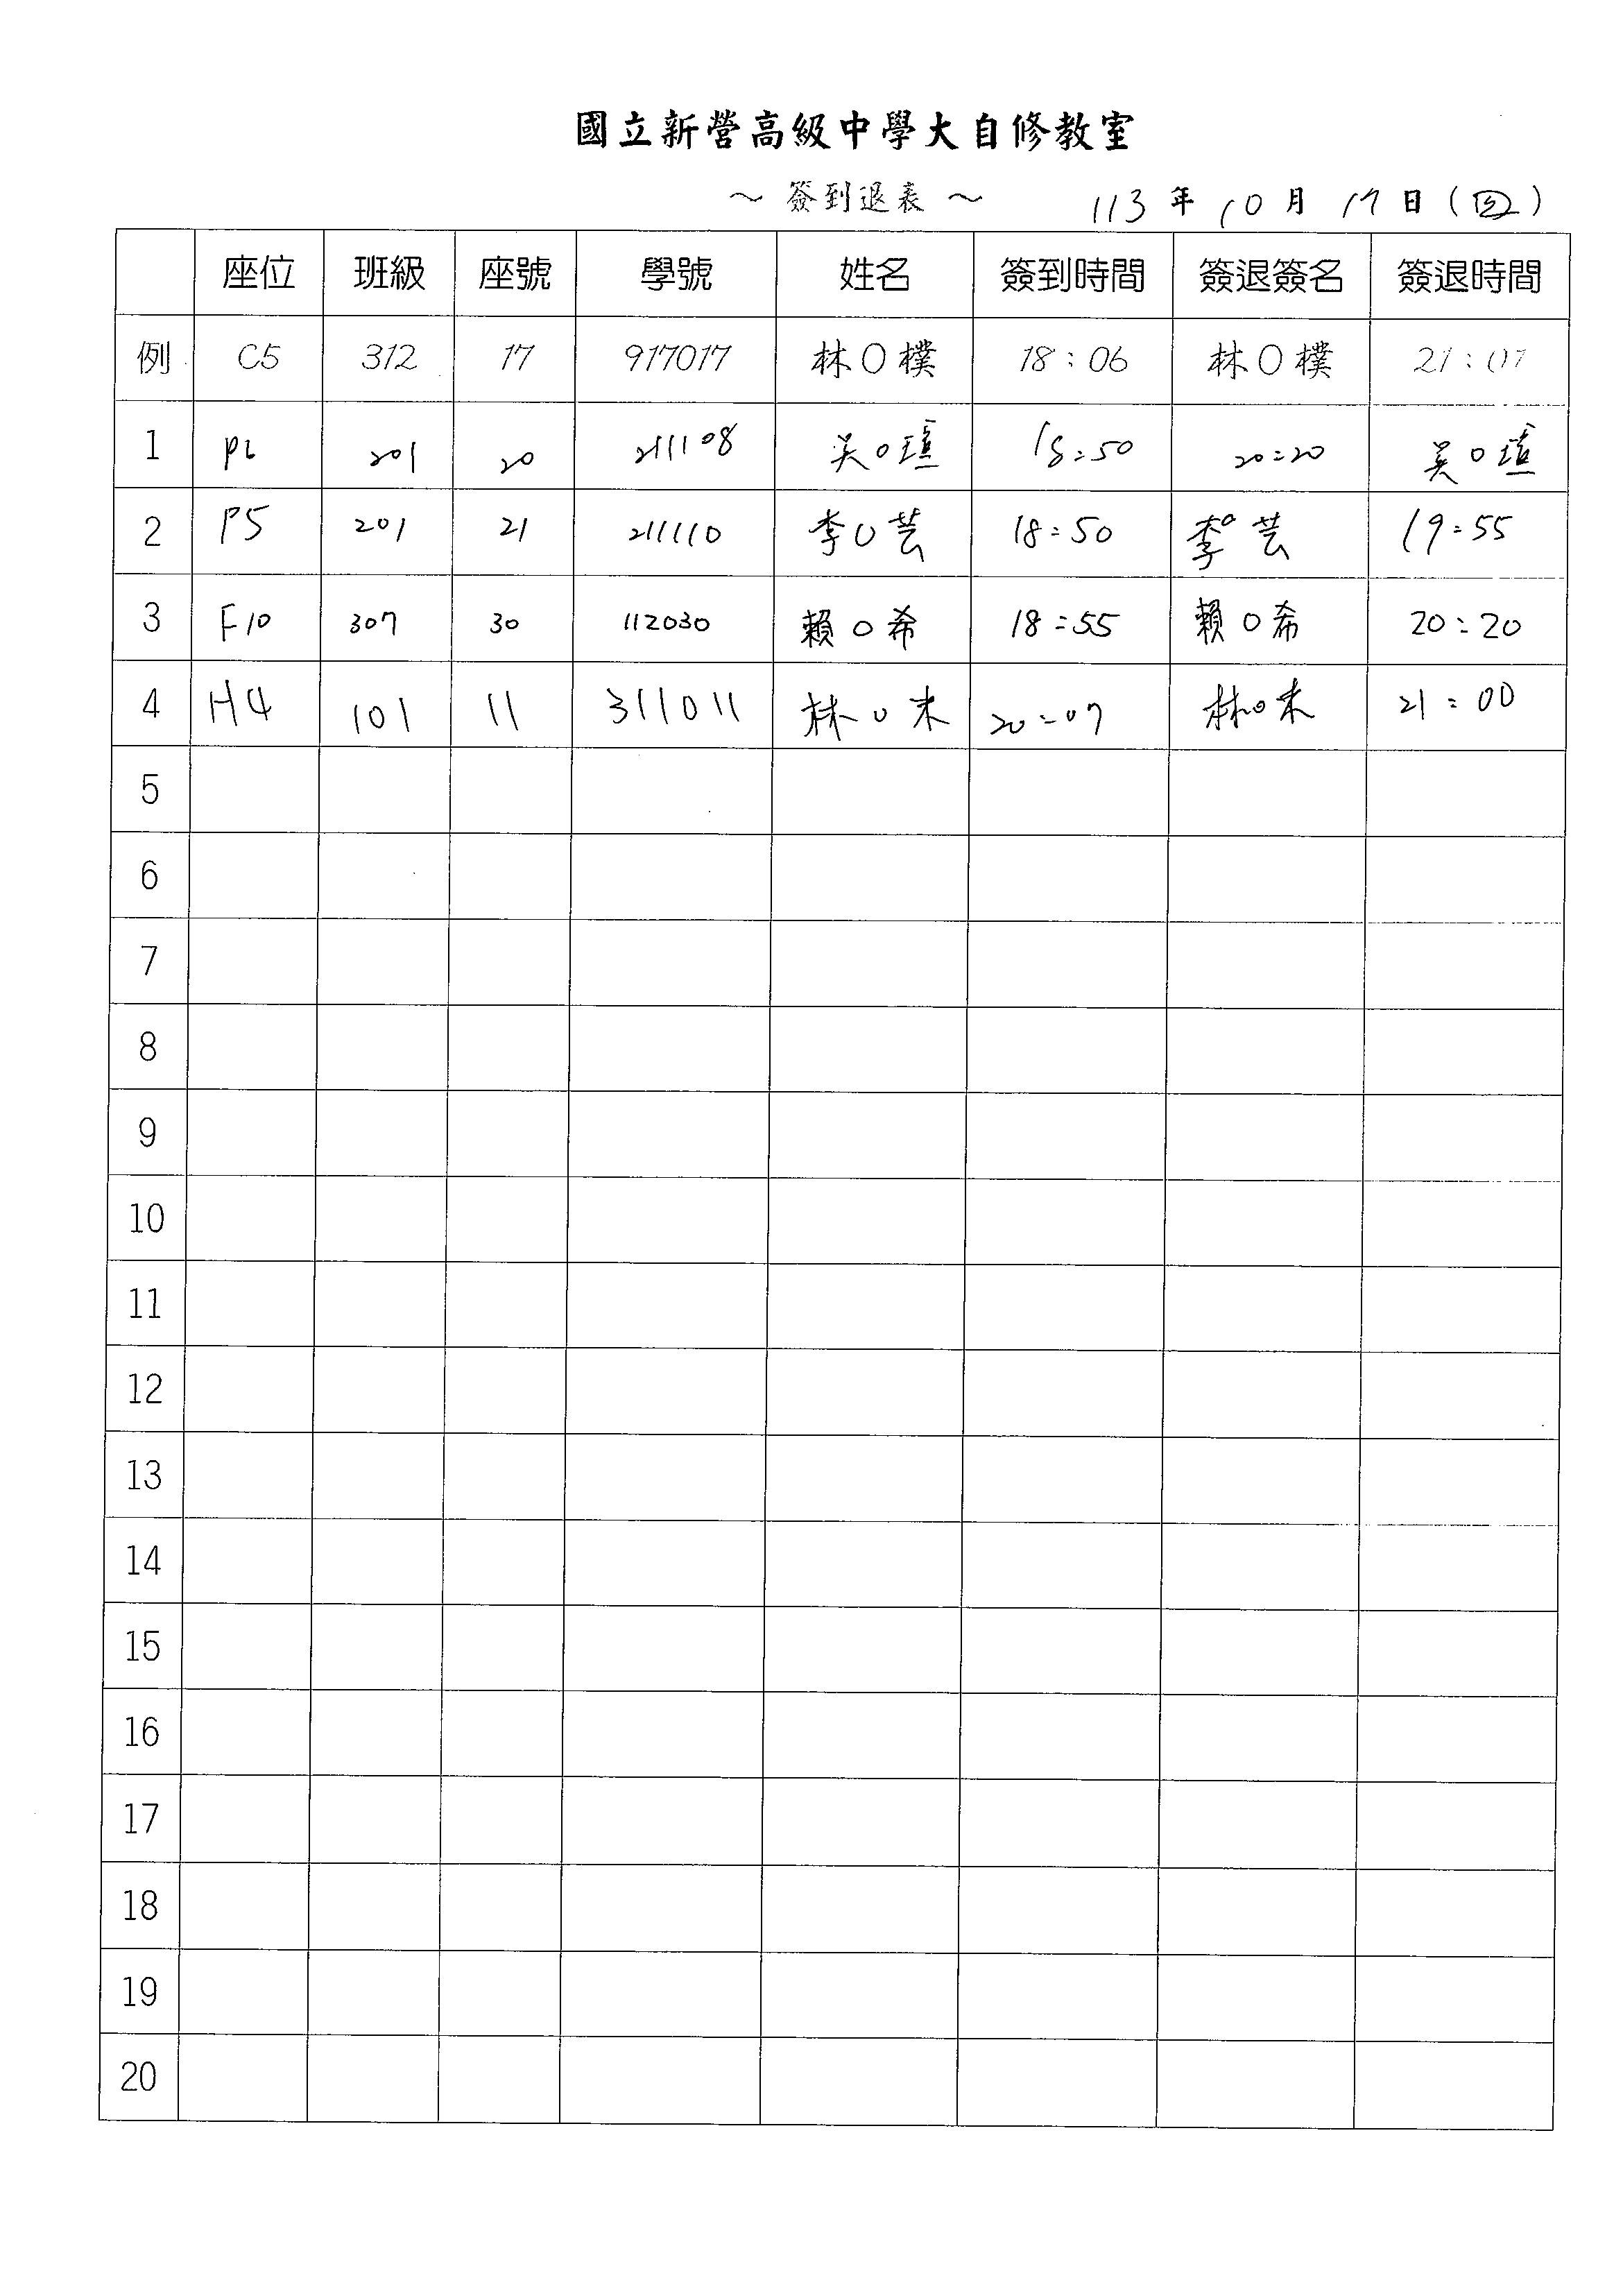 國立新營高級中學大自修教室
~ 簽到退表 ~ 113 年 10 月 17 日 (四)
座位 班級 座號 學號 姓名 簽到時間 簽退簽名 簽退時間
例 C5 312 17 917017 林O樸 18:06 林O樸 21:07
1 201 20 211108 吳O瑄 18:50 20:20 吳O瑄
2 P5 201 21 211110 李O芸 18:50 李O芸 19:55
3 F10 307 30 112030 賴O希 18:55 賴O希 20:20
4 H4 101 11 311011 林O未 20:07 林O未 21:00
5
6
7
8
9
10
11
12
13
14
15
16
17
18
19
20